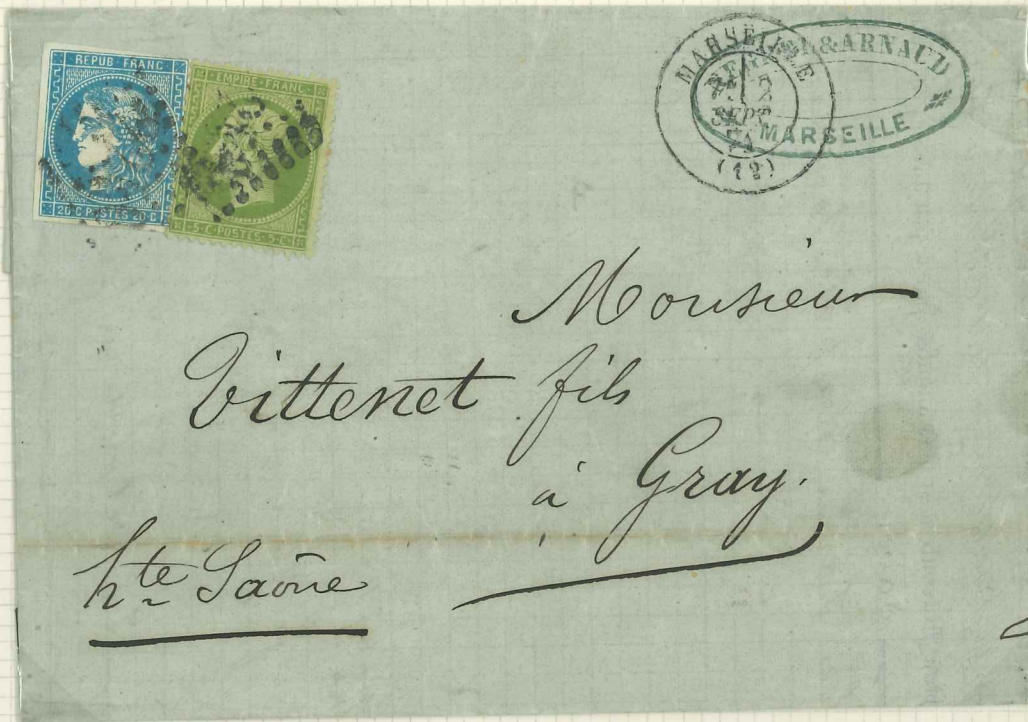 REPUB FRANC
20 C POSTES 20 C
EMPIRE FRANC
5 C POSTES 5 C
MARSEILLE
2
SEPT
71
(12)
& ARNAUD
MARSEILLE
Monsieur
Vittenet fils
à Gray.
hte Saône